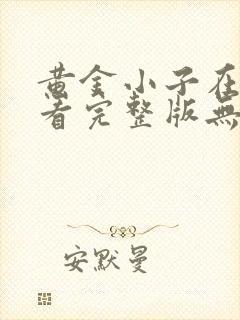 黄金小子在
看完整版無
安默曼